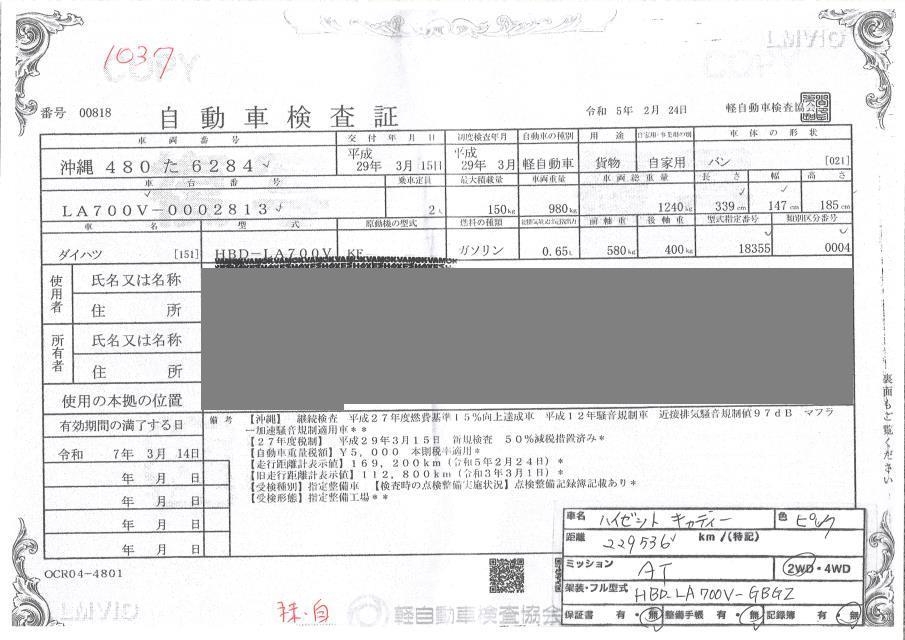 1037
COPY
番号 00818
自動車検査証
令和 5年 2月 24日
軽自動車検査協会
車両番号 交付年月日 初度検査年月 自動車の種別 用途 自家用・事業用の別 車体の形状
沖縄 480 た 6284 平成 29年 3月 15日 平成 29年 3月 軽自動車 貨物 自家用 バン [021]
車台番号 乗車定員 最大積載量 車両重量 車両総重量 長さ 幅 高さ
LA700V-0002813 2人 150kg 980kg 1240kg 339cm 147cm 185cm
車名 型式 原動機の型式 燃料の種類 前軸重 後軸重 型式指定番号 類別区分番号
ダイハツ [151] HBD-LA700V KF ガソリン 0.65L 580kg 400kg 18355 0004
使用者
氏名又は名称
住所
所有者
氏名又は名称
住所
使用の本拠の位置
有効期間の満了する日
令和 7年 3月 14日
年 月 日
年 月 日
年 月 日
年 月 日
備考
【沖縄】 継続検査 平成27年度燃費基準15%向上達成車 平成12年騒音規制車 近接排気騒音規制値97dB マフラ
ー加速騒音規制適用車**
【27年度税制】 平成29年3月15日 新規検査 50%減税措置済み*
【自動車重量税額】¥5,000 本則税率適用*
【走行距離計表示値】169,200km(令和5年2月24日)*
【旧走行距離計表示値】112,800km(令和3年3月1日)*
【受検種別】指定整備車 【検査時の点検整備実施状況】点検整備記録簿記載あり*
【受検形態】指定整備工場**
裏面もご覧ください
OCR04-4801
車名 ハイゼット キャディー 色 ピンク
距離 229536 km/(特記)
ミッション AT 2WD・4WD
架装・フル型式 HBD-LA700V-GBGZ
保証書 有・無 整備手帳 有・無 記録簿 有・無
抹・自
軽自動車検査協会